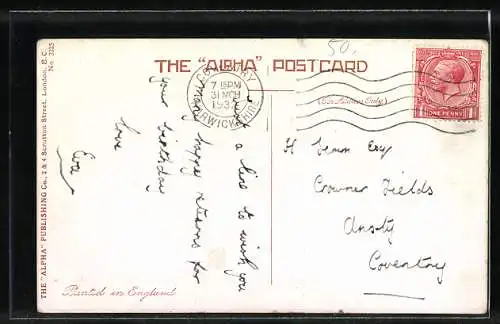 50.
THE "ALPHA" POSTCARD
COVENTRY
7 15PM
193
WARWICKSHIRE
(For Address Only)
ONE PENNY
Just a line to wish you
many happy returns for
your birthday
love
Eva
H Simon Esq
Crowner Fields
Ansty
Coventry
Printed in England
THE "ALPHA" PUBLISHING Co., 2 & 4 Scrutton Street, London, E. C.
No. 3325